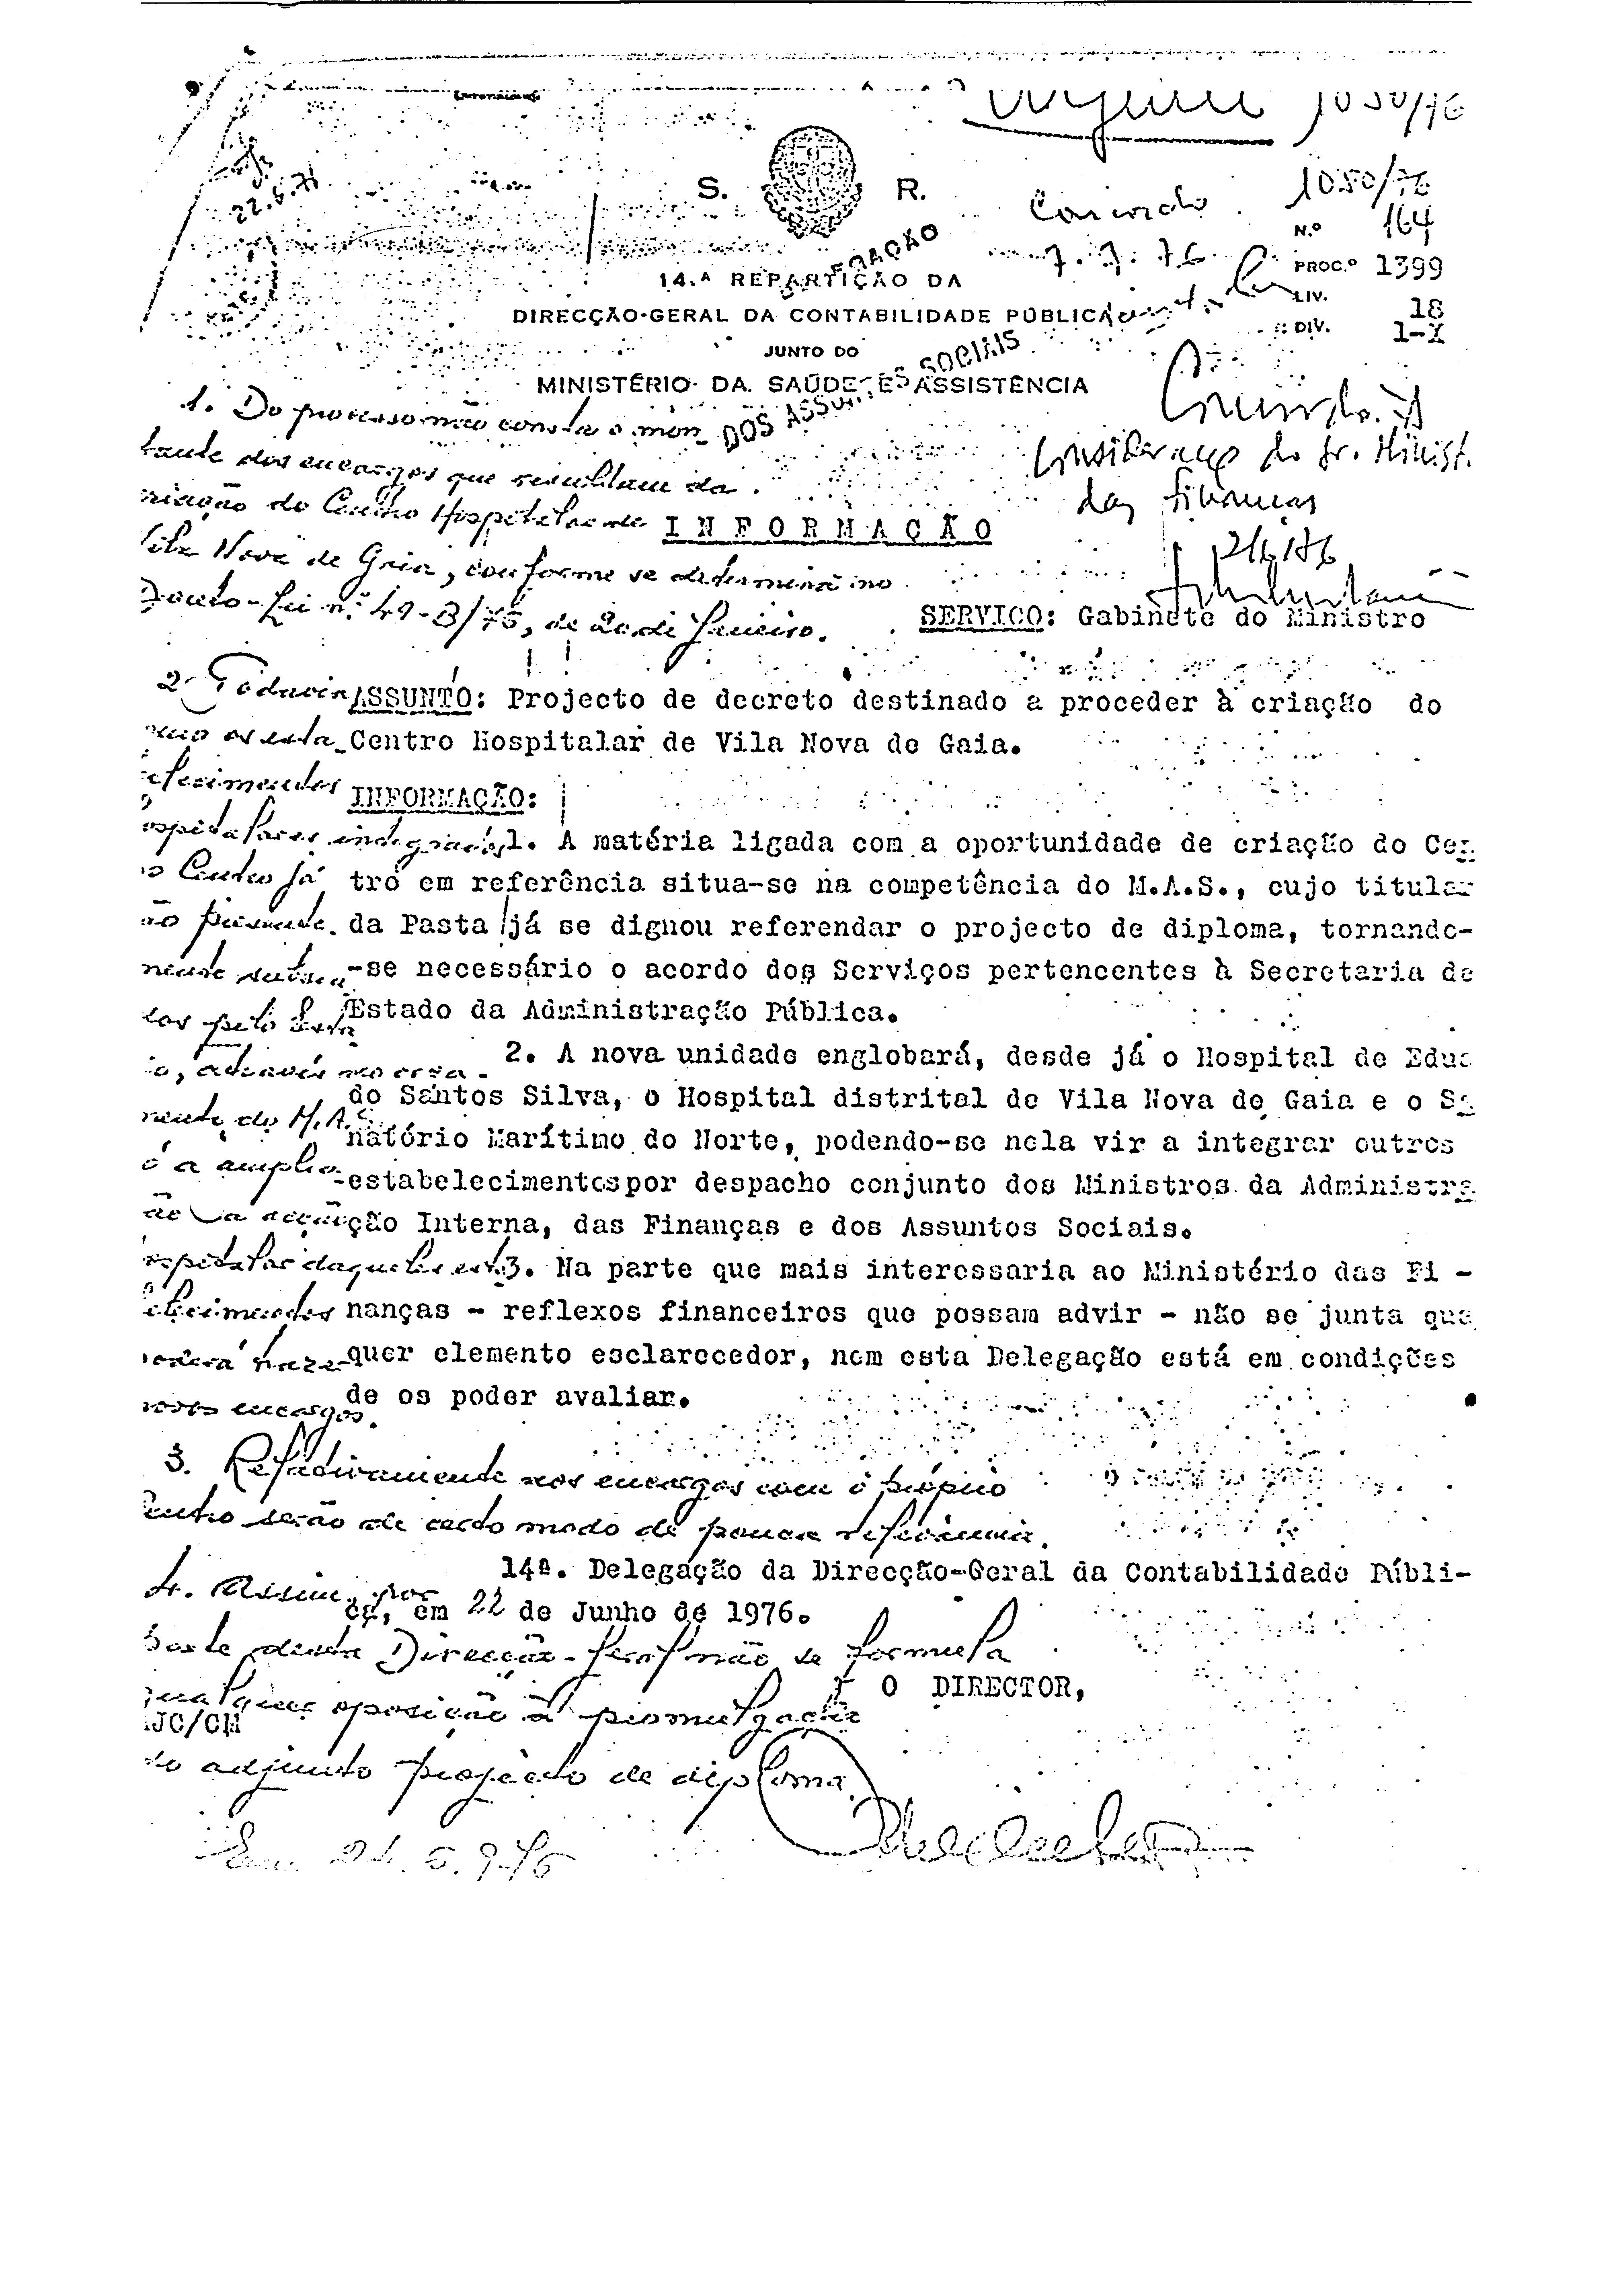 Urgente 1050/76
S. R.
Concordo 1050/76
N.º 164
7.7.76
PROC.º 1399
LIV. 18
DIV. 1-X
22.6.76
14.ª REPARTIÇÃO DA
DIRECÇÃO-GERAL DA CONTABILIDADE PÚBLICA
JUNTO DO
MINISTÉRIO DA SAÚDE E ASSISTÊNCIA
DOS ASSUNTOS SOCIAIS
Concordo. À
consideração do Sr. Minist.
das Finanças
1. Do processo não consta o mon-
tante dos encargos que resultam da
riação do Centro Hospitalar de
Vila Nova de Gaia, conforme se determina no
Decreto-Lei n.º 49-B/76, de 20 de Janeiro.
I N F O R M A Ç Ã O
SERVIÇO: Gabinete do Ministro
ASSUNTO: Projecto de decreto destinado a proceder à criação do
Centro Hospitalar de Vila Nova de Gaia.
INFORMAÇÃO:
1. A matéria ligada com a oportunidade de criação do Cen
tro em referência situa-se na competência do M.A.S., cujo titular
da Pasta já se dignou referendar o projecto de diploma, tornando-
-se necessário o acordo dos Serviços pertencentes à Secretaria de
Estado da Administração Pública.
2. A nova unidade englobará, desde já o Hospital de Edua
do Santos Silva, o Hospital distrital de Vila Nova de Gaia e o Sa
natório Marítimo do Norte, podendo-se nela vir a integrar outros
estabelecimentos por despacho conjunto dos Ministros da Administra
ção Interna, das Finanças e dos Assuntos Sociais.
3. Na parte que mais interessaria ao Ministério das Fi -
nanças - reflexos financeiros que possam advir - não se junta qua
quer elemento esclarecedor, nem esta Delegação está em condições
de os poder avaliar.
2. Todavia
mo os esta-
elecimentos
ospitalares integrados
o Centro já
ão presente-
mente
dos pelo Esta
o, através
mente do M.A.S.
ó a amplia-
ão
ospitalar daqueles esta
elecimentos
poderá trazer
novos encargos.
3. Relativamente aos encargos com o próprio
entro serão de certo modo de pouca relevância.
14ª. Delegação da Direcção-Geral da Contabilidade Públi-
ca, em 22 de Junho de 1976.
4. Assim, por
parte desta Direcção-Geral não se formula
qualquer oposição à promulgação
do adjunto projecto de diploma.
O DIRECTOR,
JC/CM
Em 24.6.976